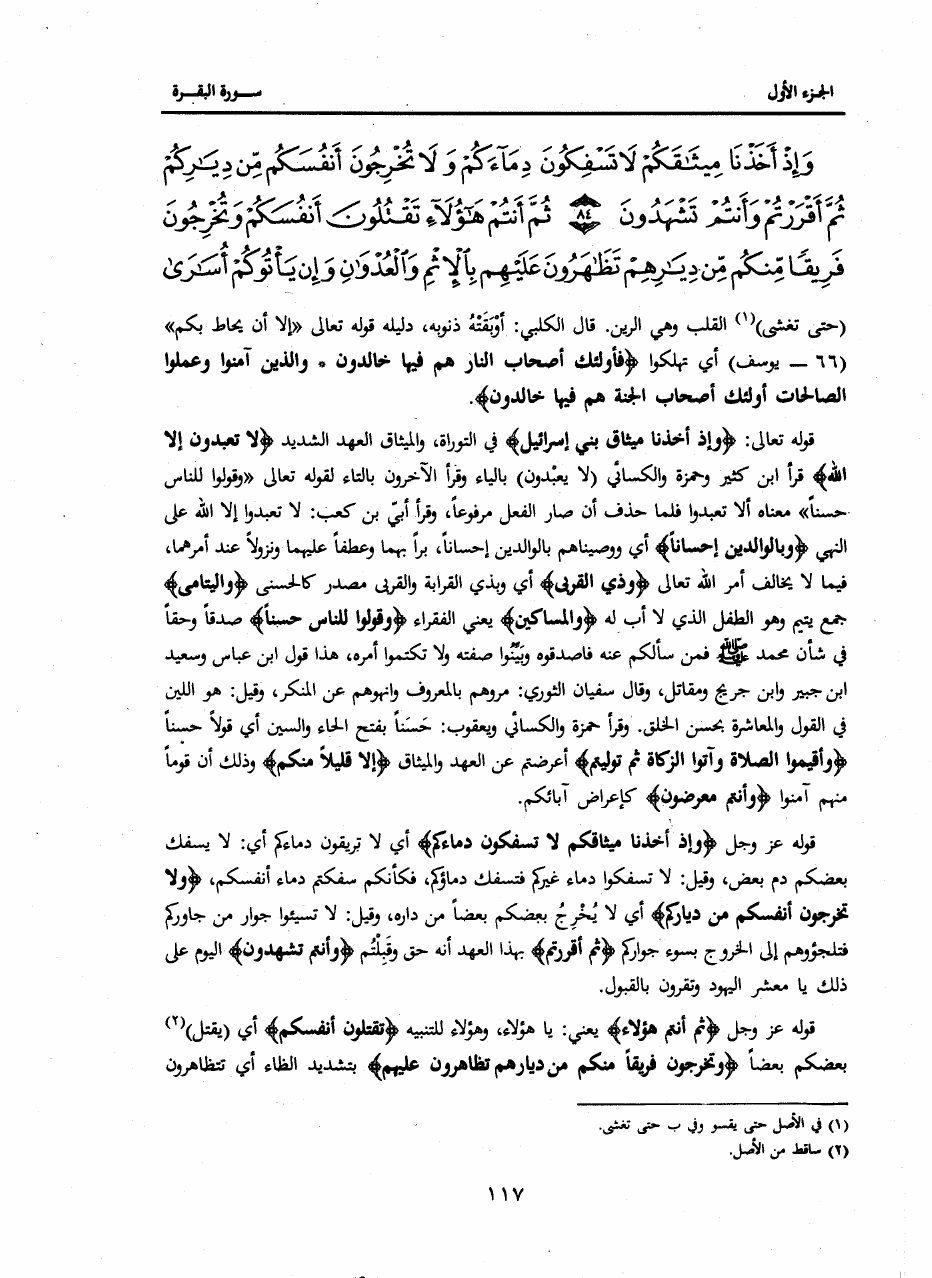 الجزء الأول
ســورة البقــرة
وَإِذْ أَخَذْنَا مِيثَـٰقَكُمْ لَا تَسْفِكُونَ دِمَآءَكُمْ وَ لَا تُخْرِجُونَ أَنفُسَكُم مِّن دِيَـٰرِكُمْ
ثُمَّ أَقْرَرْتُمْ وَأَنتُمْ تَشْهَدُونَ ٨٤ ثُمَّ أَنتُمْ هَـٰٓؤُلَآءِ تَقْتُلُونَ أَنفُسَكُمْ وَتُخْرِجُونَ
فَرِيقًا مِّنكُم مِّن دِيَـٰرِهِمْ تَظَّـٰهَرُونَ عَلَيْهِم بِٱلْإِثْمِ وَٱلْعُدْوَٰنِ وَإِن يَأْتُوكُمْ أُسَـٰرَىٰ
(حتى تغشى)(١) القلب وهي الرين. قال الكلبي: أوْبَقَتْهُ ذنوبه، دليله قوله تعالى «إلا أن يحاط بكم»
(٦٦ — يوسف) أي تهلكوا ﴿فأولئك أصحاب النار هم فيها خالدون * والذين آمنوا وعملوا
الصالحات أولئك أصحاب الجنة هم فيها خالدون﴾.
قوله تعالى: ﴿وإذ أخذنا ميثاق بني إسرائيل﴾ في التوراة، والميثاق العهد الشديد ﴿لا تعبدون إلا
الله﴾ قرأ ابن كثير وحمزة والكسائي (لا يعبْدون) بالياء وقرأ الآخرون بالتاء لقوله تعالى «وقولوا للناس
حسناً» معناه ألا تعبدوا فلما حذف أن صار الفعل مرفوعاً، وقرأ أبيّ بن كعب: لا تعبدوا إلا الله على
النهي ﴿وبالوالدين إحساناً﴾ أي ووصيناهم بالوالدين إحساناً، براً بهما وعطفاً عليهما ونزولاً عند أمرهما،
فيما لا يخالف أمر الله تعالى ﴿وذي القربى﴾ أي وبذي القرابة والقربى مصدر كالحسنى ﴿واليتامى﴾
جمع يتيم وهو الطفل الذي لا أب له ﴿والمساكين﴾ يعني الفقراء ﴿وقولوا للناس حسناً﴾ صدقاً وحقاً
في شأن محمد ﷺ فمن سألكم عنه فاصدقوه وبَيِّنُوا صفته ولا تكتموا أمره، هذا قول ابن عباس وسعيد
ابن جبير وابن جريج ومقاتل، وقال سفيان الثوري: مروهم بالمعروف وانهوهم عن المنكر، وقيل: هو اللين
في القول والمعاشرة بحسن الخلق. وقرأ حمزة والكسائي ويعقوب: حَسَناً بفتح الحاء والسين أي قولاً حسناً
﴿وأقيموا الصلاة وآتوا الزكاة ثم توليتم﴾ أعرضتم عن العهد والميثاق ﴿إلا قليلاً منكم﴾ وذلك أن قوماً
منهم آمنوا ﴿وأنتم معرضون﴾ كإعراض آبائكم.
قوله عز وجل ﴿وإذ أخذنا ميثاقكم لا تسفكون دماءكم﴾ أي لا تريقون دماءكم أي: لا يسفك
بعضكم دم بعض، وقيل: لا تسفكوا دماء غيركم فتسفك دماؤكم، فكأنكم سفكتم دماء أنفسكم، ﴿ولا
تخرجون أنفسكم من دياركم﴾ أي لا يُخْرِجُ بعضكم بعضاً من داره، وقيل: لا تسيئوا جوار من جاوركم
فتلجؤوهم إلى الخروج بسوء جواركم ﴿ثم أقررتم﴾ بهذا العهد أنه حق وقَبِلْتُم ﴿وأنتم تشهدون﴾ اليوم على
ذلك يا معشر اليهود وتقرون بالقبول.
قوله عز وجل ﴿ثم أنتم هؤلاء﴾ يعني: يا هؤلاء، وهؤلاء للتنبيه ﴿تقتلون أنفسكم﴾ أي (يقتل)(٢)
بعضكم بعضاً ﴿وتخرجون فريقاً منكم من ديارهم تظاهرون عليهم﴾ بتشديد الظاء أي تتظاهرون
(١) في الأصل حتى يقسو وفي ب حتى تغشى.
(٢) ساقط من الأصل.
١١٧